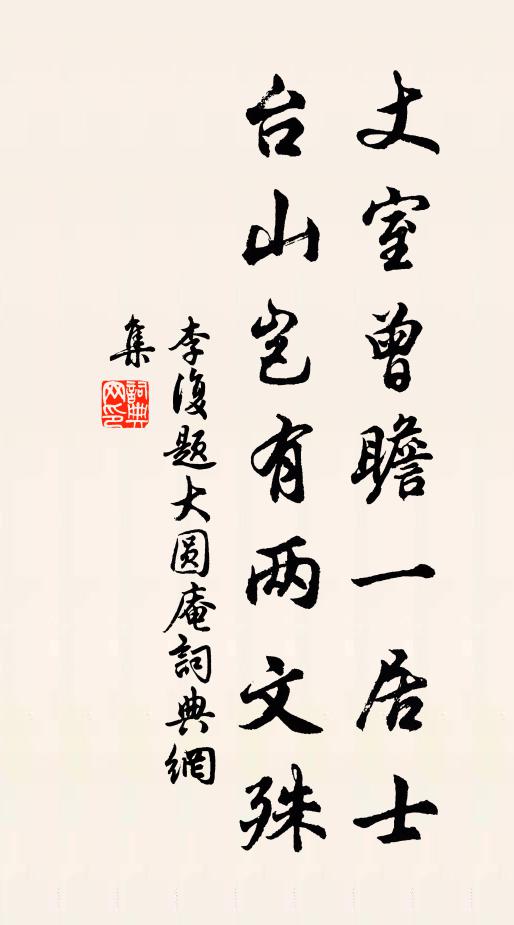 丈室曾瞻一居士
台山岂有两文殊
李復題大圆庵詞典網
集
詞典
网印